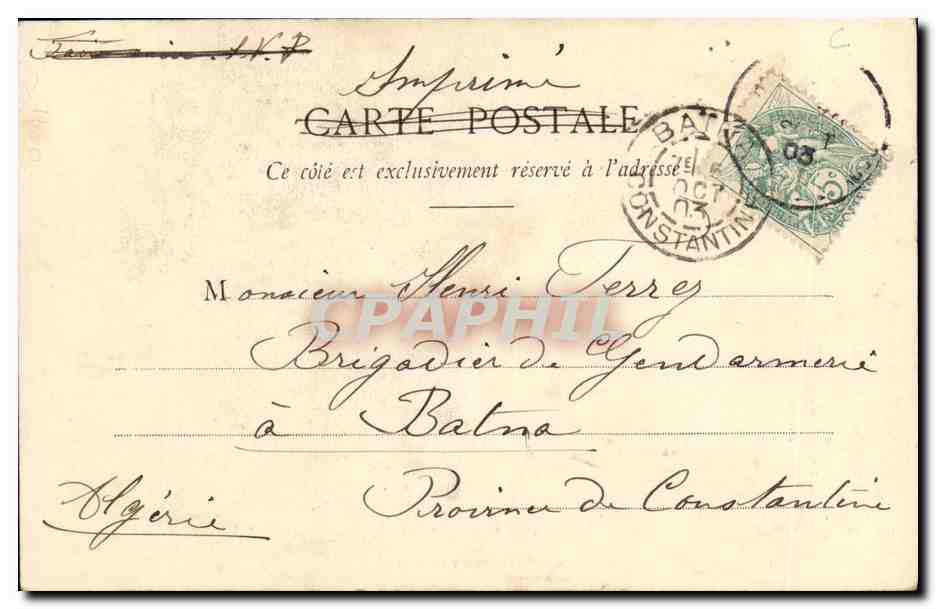 Imprimé
CARTE POSTALE
Ce côté est exclusivement réservé à l'adresse
BATNA
OCT
03
CONSTANTINE
03
5c
Monsieur Henri Terrez
CPAPHIL
Brigadier de Gendarmerie
à Batna
Province de Constantine
Algérie